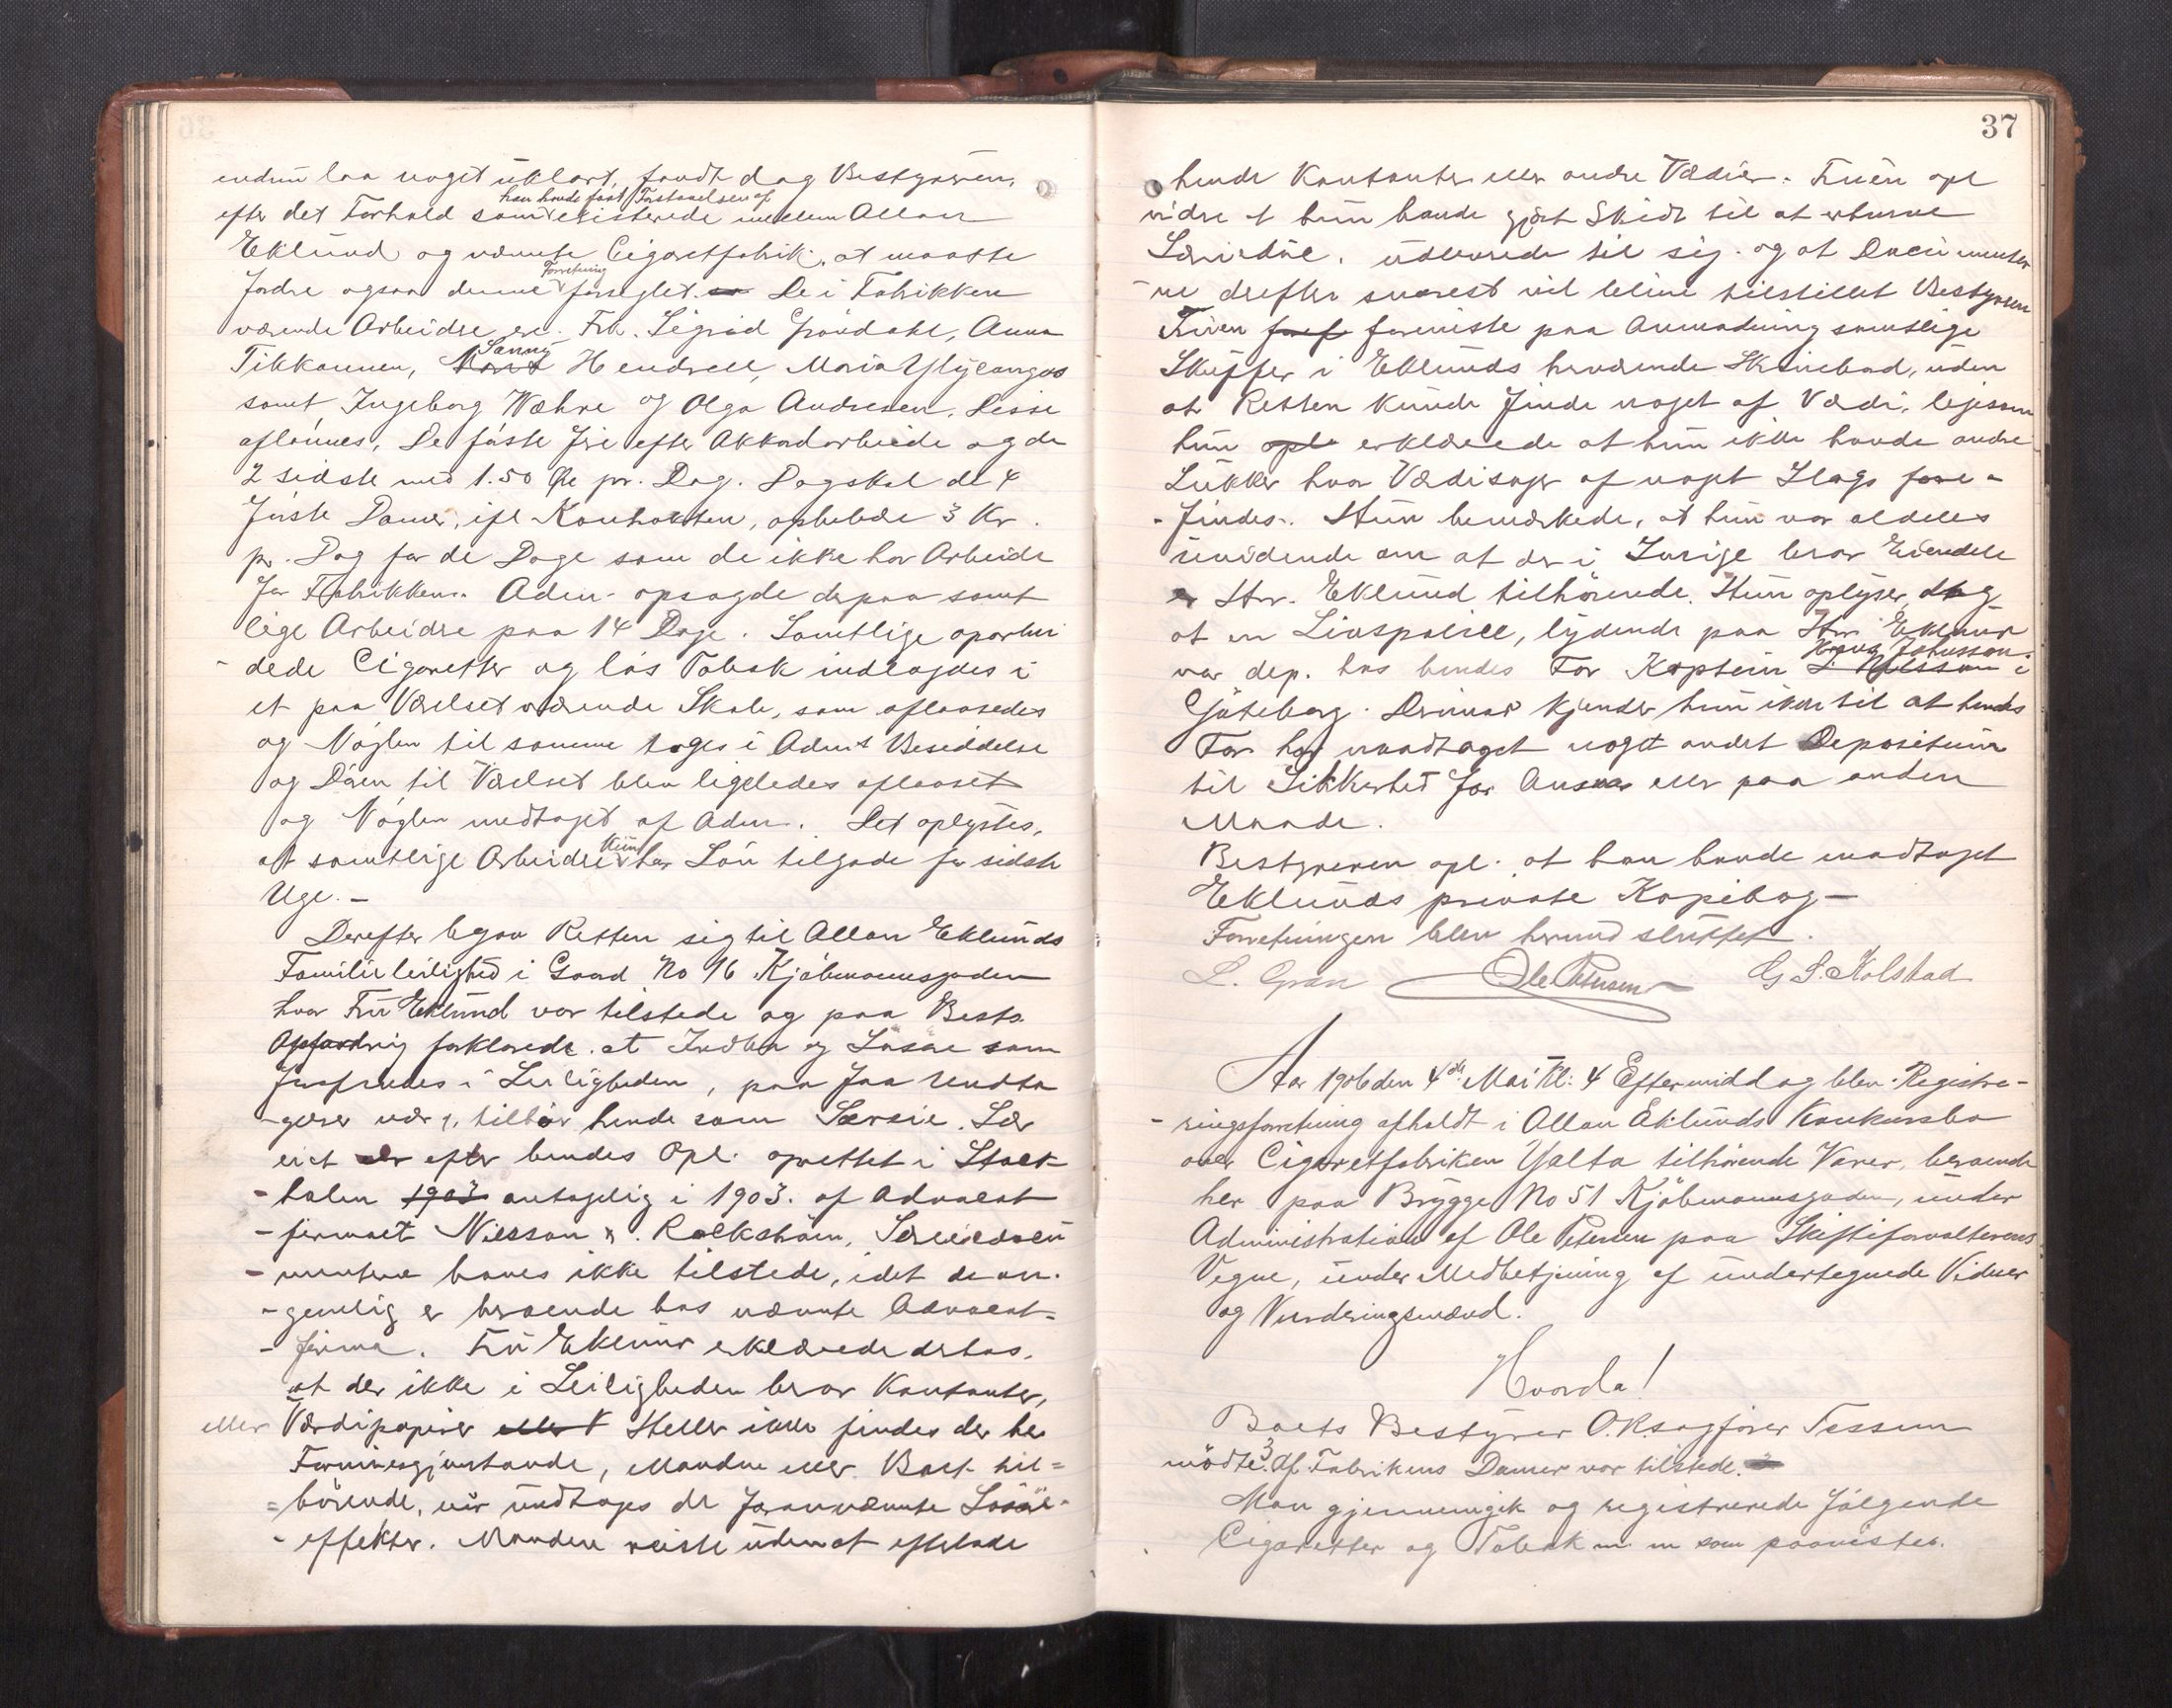 endnu laa noget uklart, fandt dog Bestyreren,
han havde faat Forstaaelsen af
efter det Forhold som existerede mellem Allan
Eklund og nævnte Cigaretfabrik, at maatte
Forretning
fordre ogsaa denne forseglet. De i Fabrikken
værende Arbeidere er. Frk. Sigrid Gröndahl, Anna
Sanny
Tikkanen, Hendrell, Maria
samt Ingeborg Wæhre og Olga Andresen. Disse
aflönnes, De förste fire efter Akkordarbeide og de
2 sidste med 1.50 Öre pr. Dag. Dog skal de 4
förste Damer, ifl Kontrakten, oppebære 3 Kr.
pr. Dag for de Dage som de ikke har Arbeide
for Fabrikken. Adm. opsagde derpaa samt
lige Arbeidre paa 14 Dage. Samtlige oparbei
-dede Cigaretter og lös Tobak indlagdes i
et paa Værelset værende Skab, som aflaasedes
og Nöglen til samme toges i Adm's Besiddelse
og Dören til Værelset blev ligeledes aflaaset
og Nöglen medtaget af Adm. Det oplystes,
kun
at samtlige Arbeidre har Lön tilgode for sidste
Uge. -
Derefter begav Retten sig til Allan Eklunds
Familieleilighed i Gaard No 16 Kjöbmannsgaden
hvor Fru Eklund var tilstede og paa Bests.
Opfordring forklarede. at Indbo og Lösöre som
forefindes i Leiligheden, paa faa Undta
-gelser nær, tilhör hende som Særeie. Sær
eiet er efter hendes Opl. oprettet i Stock-
-holm 1903 antagelig i 1903. af Advocat
-firmaet Nilsson &. Rolkström, Særeiedocu
-menterne haves ikke tilstede, idet de an-
-givelig er beroende hos nævnte Advocat=
-firma. Fru Eklund erklærede derhos,
at der ikke i Leiligheden beror Kontanter,
eller Værdipapirer eller Heller ikke findes der her
Formuesgjenstande, Manden eller Boet til=
=hörende, naar undtages de forannævnte Lösöre-
-effekter. Manden reiste uden at efterlade
37
hende Kontanter eller andre Værdier. Fruen opl
vidre at hun havde gjort Skridt til at erherve
Særeiedoc. udleverede til sig. og at Documenter
-ne derefter snarest vil blive tilstillet Bestyreren
Fruen foref foreviste paa Anmodning samtlige
Skuffer i Eklunds herværende Skrivebord, uden
at Retten kunde finde noget af Værdi, ligesom
hun opl erklærede at hun ikke havde andre
Lukker hvor Værdisager af noget Slags fore-
-findes. Hun bemærkede, at hun var aldeles
uvidende om at der i Sverige beror Eiendele
Hr. Eklund tilhörende. Hun oplyser dog
at en Livspolice, lydende paa Hr. Eklund
Johnsson
var dep. hos hendes Far Kaptein i
Göteborg. Derimod kjender hun ikke til at hendes
Far har modtaget noget andet Depositum
til Sikkerhed for Ansvar eller paa anden
Maade.
Bestyreren opl. at han havde modtaget
Eklunds private Kopibog -
Forretningen blev hermed sluttet.
L. Gran Ole Petersen G S. Kolstad
Aar 1906 den 4de Mai Kl: 4 Eftermiddag blev Registre-
-ringsforretning afholdt i Allan Eklunds Konkursbo
over Cigaretfabriken Yalta tilhörende Varer, beroende
her paa Brygge No 51 Kjöbmannsgaden, under
Administration af Ole Petersen paa Skifteforvalterens
Vegne, under Medbetjening af undertegnede Vidner
og Vurderingsmænd.
Hvorda!
Boets Bestyrer O.R.sagförer Tessem
mödte. 3 af Fabrikens Damer var tilstede.
Man gjennemgik og registrerede fölgende
Cigaretter og Tobak m m som paavistes.